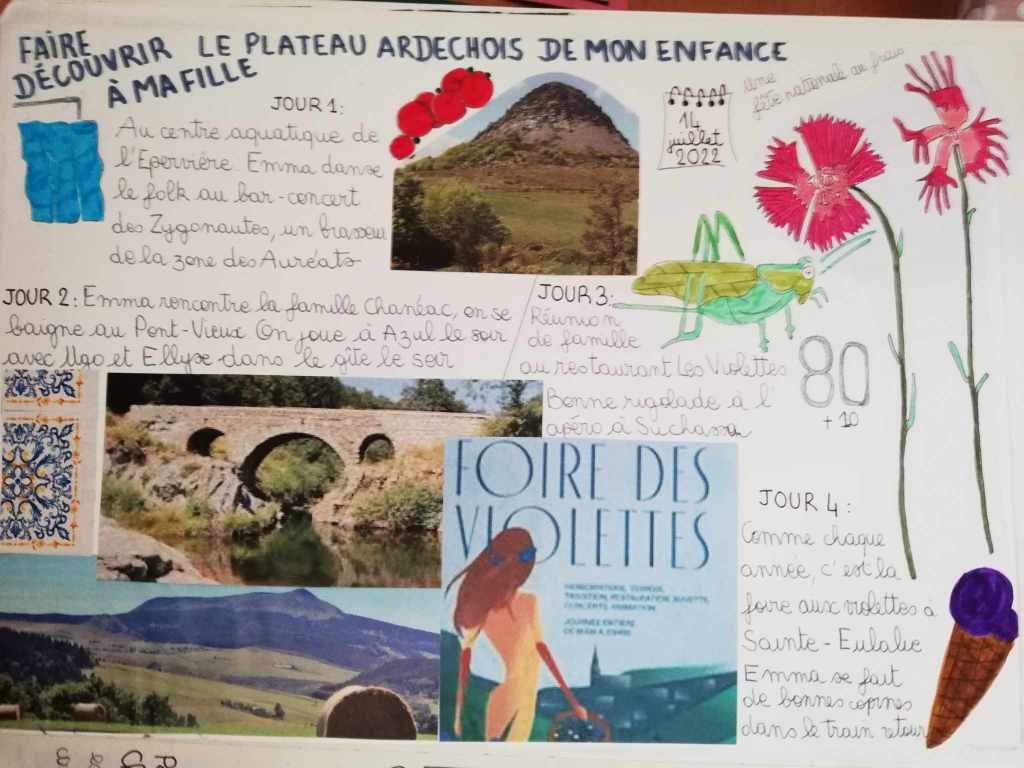 FAIRE
DÉCOUVRIR LE PLATEAU ARDECHOIS DE MON ENFANCE
À MA FILLE
JOUR 1:
Au centre aquatique de
l'Epervière. Emma danse
le folk au bar-concert
des Zygonautes, un brasseur
de la zone des Auréats
14
juillet
2022
Une
fête nationale au frais
JOUR 2: Emma rencontre la famille Chanéac, on se
baigne au Pont-Vieux On joue à Azul le soir
avec Ugo et Ellyse dans le gîte le soir
JOUR 3:
Réunion
de famille
au restaurant Les Violettes
Bonne rigolade à l'
apéro à Suchasson
80
+ 10
FOIRE DES
VIOLETTES
TRADITION, RESTAURATION, BUVETTE,
CONCERTS, ANIMATION
JOURNÉE ENTIÈRE
JOUR 4:
Comme chaque
année, c'est la
foire aux violettes à
Sainte-Eulalie
Emma se fait
de bonnes copines
dans le train retour